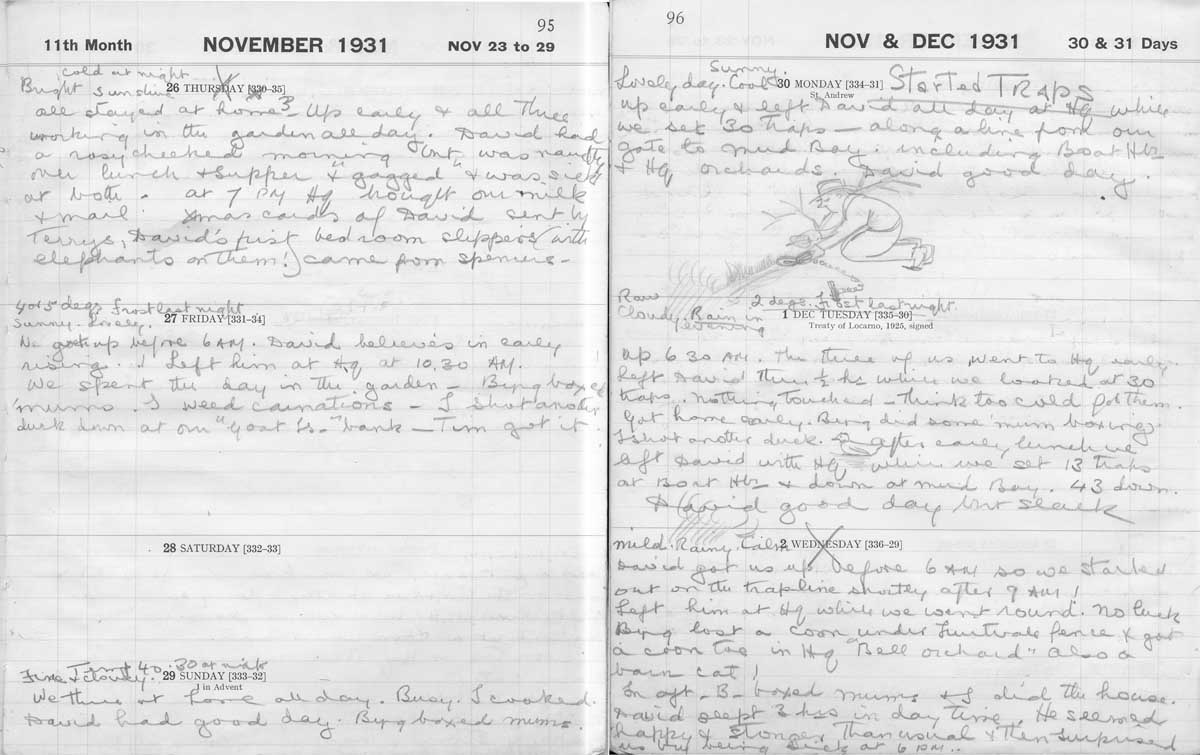 95
11th Month NOVEMBER 1931 NOV 23 to 29
cold at night
Bright sunshine 26 THURSDAY [330-35]
all stayed at home. Up early & all three
working in the garden all day. David had
a rosy cheeked morning but was naughty
over lunch & supper & "gagged" & was sick
at both. at 7 PM Hq brought our milk
& mail. Xmas cards of David sent by
Terrys, David's first bedroom slippers (with
elephants on them!) came from Spencers -
4 or 5 degs frost last night
Sunny. Lovely. 27 FRIDAY [331-34]
We got up before 6 AM. David believes in early
rising..! Left him at Hq at 10.30 AM.
We spent the day in the garden - Byng boxed
'mums. I weed carnations - I shot another
duck down at our "Goat Is-" bank - Tim got it
28 SATURDAY [332-33]
Temp 40. 30 at night
Fine & cloudy. 29 SUNDAY [333-32]
1 in Advent
We three at home all day. Busy. I cooked.
David had good day. Byng boxed mums.
96
NOV & DEC 1931 30 & 31 Days
Sunny
Lovely day. Cool. 30 MONDAY [334-31] Started TRAPS
St. Andrew
up early & left David all day at Hq while
we set 30 traps - along a line from our
gate to Mud Bay. including Boat Hbr
& Hq orchards. David good day.
Raw 2 degs. frost last night.
Cloudy. Rain in evening 1 DEC TUESDAY [335-30]
Treaty of Locarno, 1925, signed
up 6 30 AM. The three of us went to Hq early
Left David there ½ hr while we looked at 30
traps. nothing touched - think too cold for them.
Got home early. Byng did some 'mum boxing.
I shot another duck. after early lunch we
left David with Hq while we set 13 traps
at Boat Hbr & down at Mud Bay. 43 down.
David good day but slack
mild. Rainy. Calm 2 WEDNESDAY [336-29]
David got us up before 6 AM so we started
out on the trapline shortly after 9 AM!
Left him at Hq while we went round. No luck
Byng lost a coon under fence & got
a coon toe in Hq "Bell orchard" also a
barn cat!
In aft. B- boxed mums & I did the house.
David slept 3 hrs in day time. He seemed
happy & stronger than usual & then surprised
us by being sick at 6 PM..